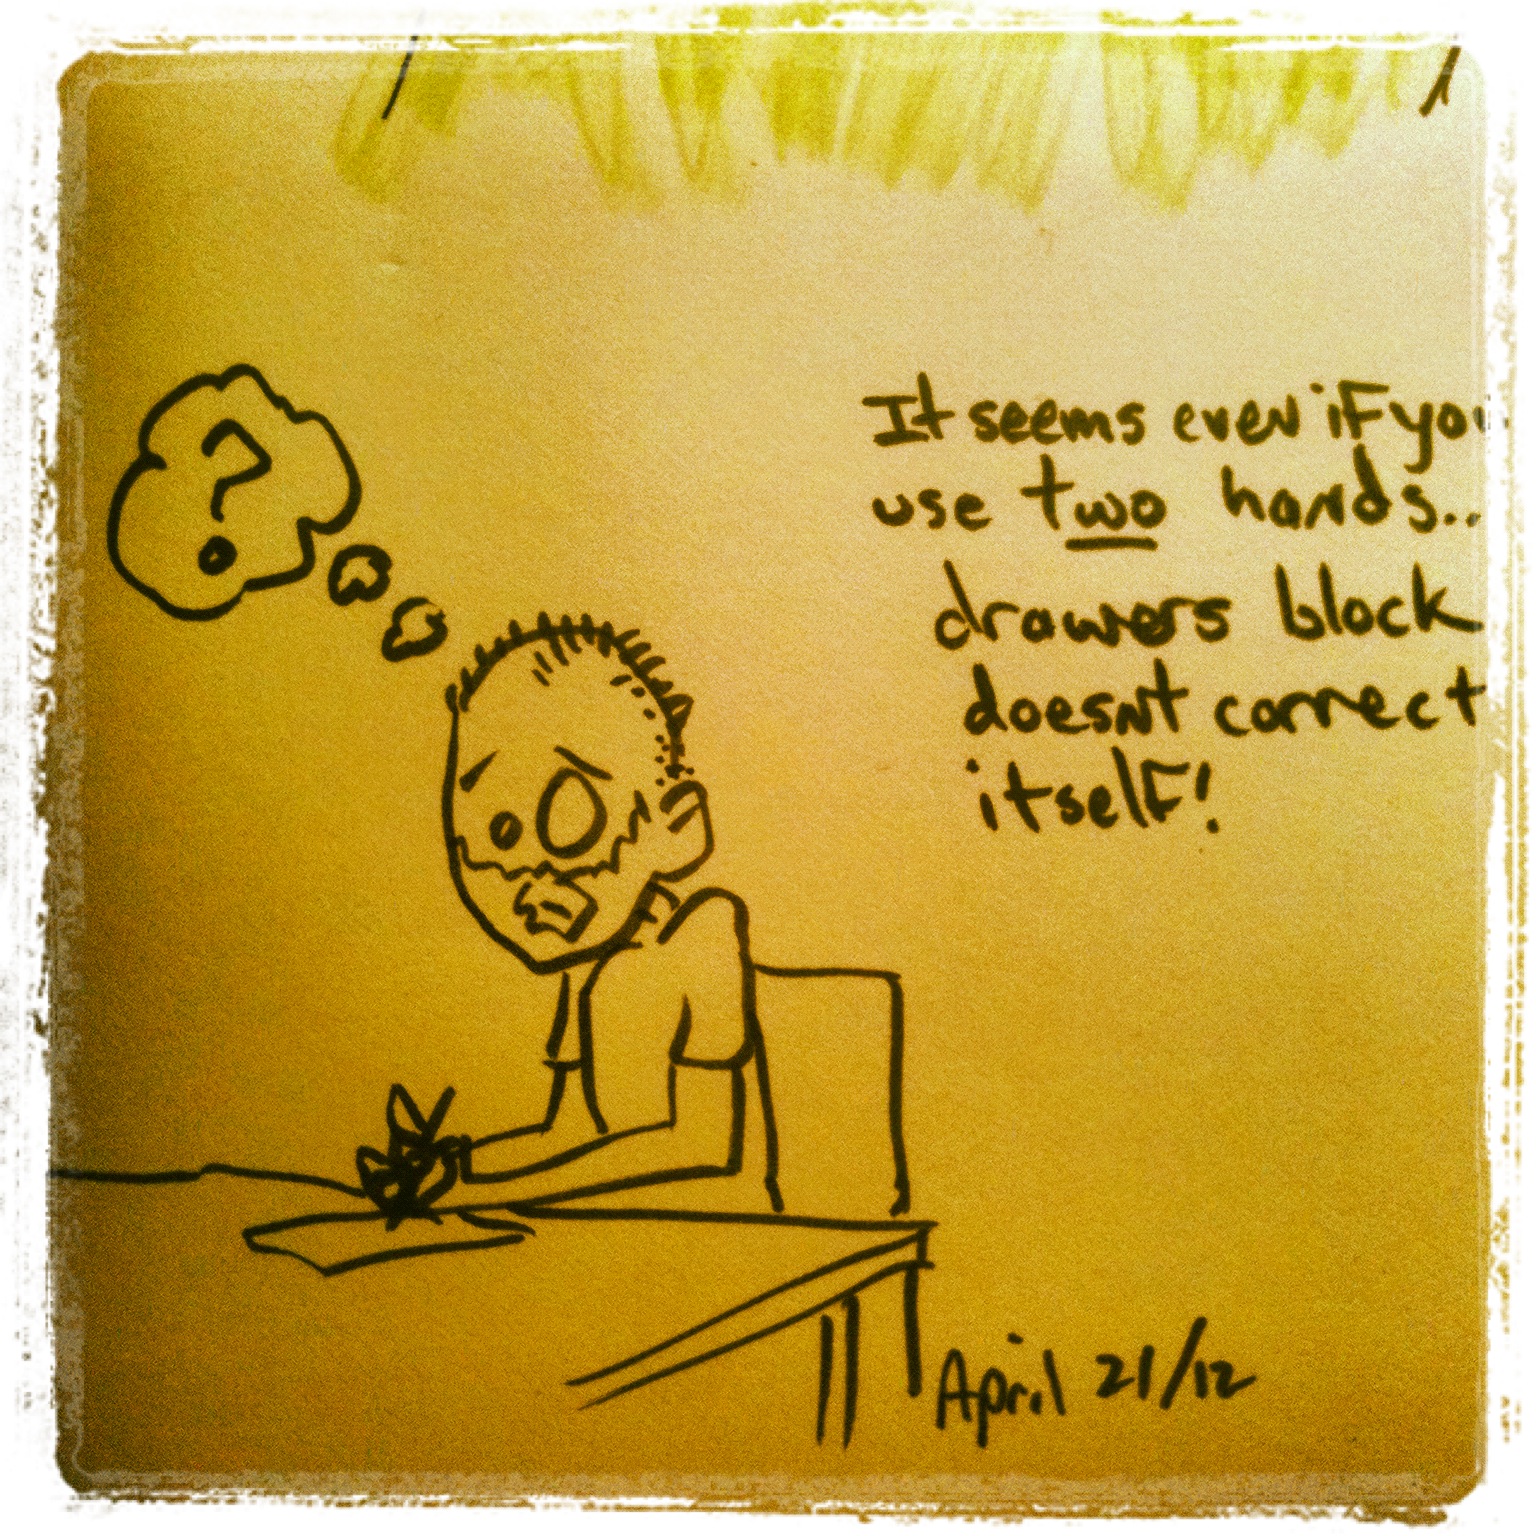 ?
It seems even if you
use two hands..
drawers block
doesn't correct
itself!
April 21/12